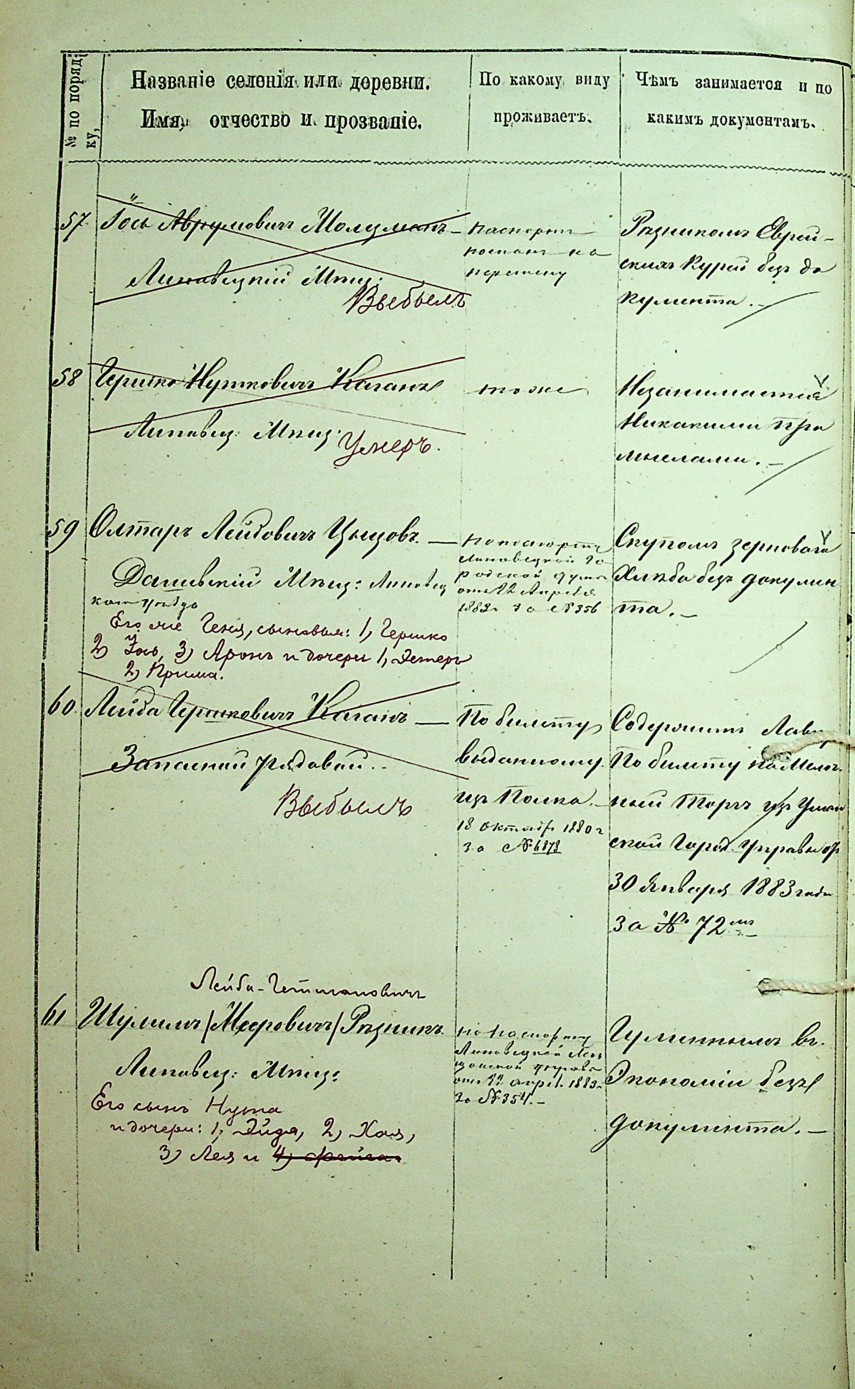 № по поряд
ку,
Названіе селенія или деревни.
Имя, отчество и прозваніе.
По какому виду
проживаетъ.
Чѣмъ занимается и по
какимъ документамъ.
57
Іось Аврумовичъ
Липовецкій Мѣщ:
Выбылъ
Паспортъ
посланъ на
перемену
Рѣзникомъ Еврей-
скихъ Курей безъ до
кумента. —
58
Гершко Нутковичъ Каганъ
Липовец: Мѣщ:
Умеръ.
тоже
Незанимается
Никакими про
мыслами. —
59
Олтаръ Лейбовичъ —
Дашевскій Мѣщ: Липовец
каго уѣзда
Его Геня, сыновья: 1, Гершко
2) Іось, 3) Аронъ и дочери 1, Эстеръ
2) Прима.
По паспорту
Липовецкой Го
родской
отъ 22 Апреля
188 за № 356
Скупомъ зерноваго
Хлѣба безъ докумен
та. —
60
Лейба Гершковичъ Каганъ —
Запасной рядовой —
Выбылъ
По билету
выданному
изъ Полка —
18 Октября 1880 г
за № 6878
Содержитъ Лавку
По билету на Мелоч
ный Торгъ изъ Уман
ской Город. Управы отъ
30 Января 1883 года
За № 72
61
Лейба-Гетмановичъ
Шулимъ /Мееровичъ/ Рѣзникъ
Липовец: Мѣщ:
Его сынъ Нута
и дочери: 1, Эйдя, 2) Хая,
3) Лея и 4)
По паспорту
Липовецкой
отъ 22 апрел. 1883
За № 354. —
Гуменнымъ въ
Экономіи безъ
документа. —